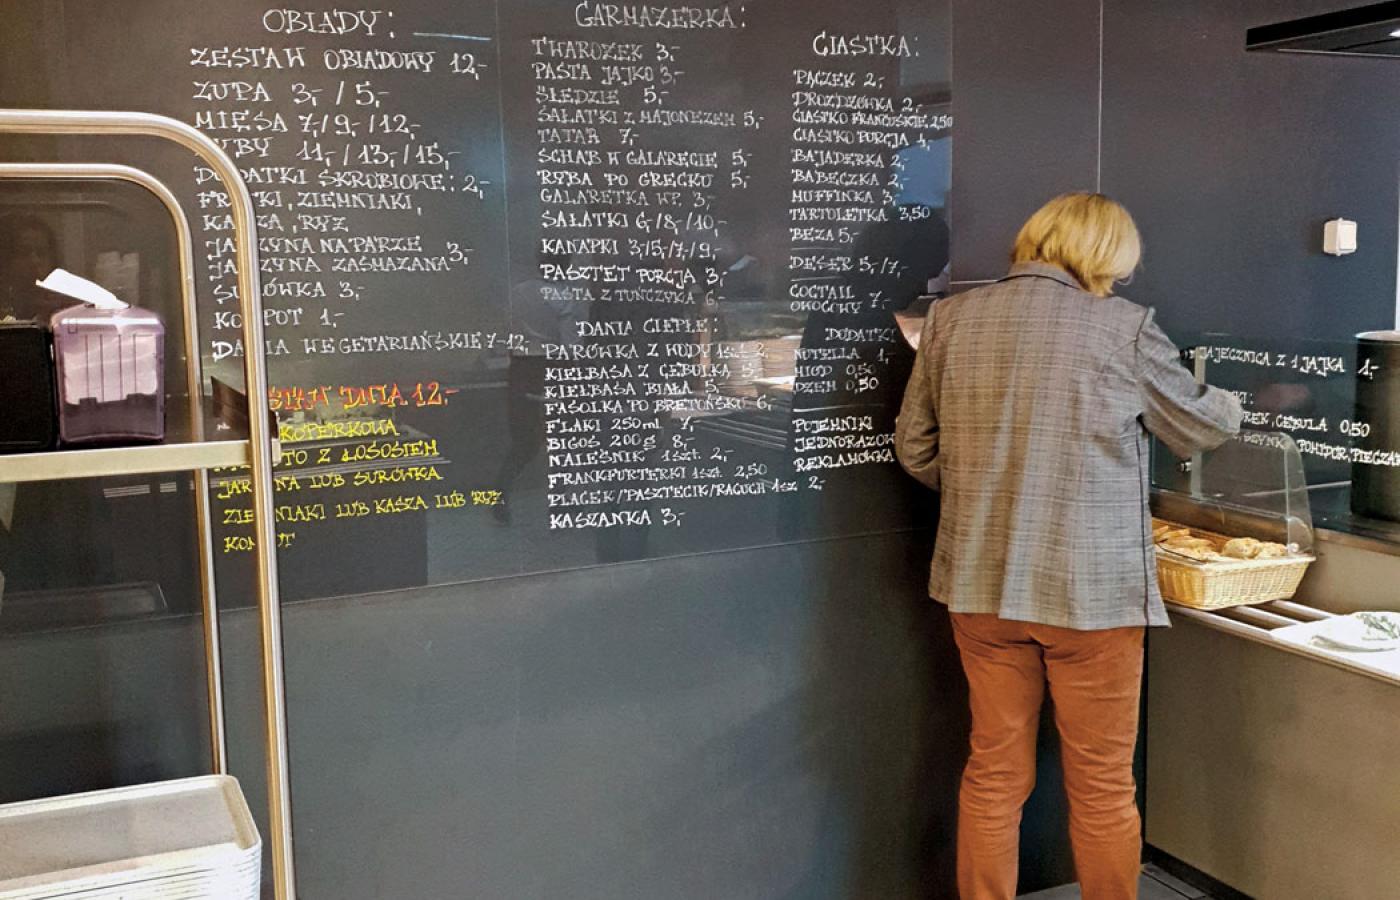 OBIADY:
ZESTAW OBIADOWY 12,-
ZUPA 3,- / 5,-
MIĘSA 7,-/9,-/12,-
11,-/13,-/15,-
DODATKI SKROBIOWE: 2,-
FRYTKI, ZIEMNIAKI,
KASZA, RYŻ
JARZYNA NA PARZE
JARZYNA ZASMAŻANA 3,-
SURÓWKA 3,-
KOMPOT 1,-
DANIA WEGETARIAŃSKIE 7-12,-
DNIA 12,-
KOPERKOWA
Z ŁOSOSIEM
JARZYNA LUB SURÓWKA
ZIEMNIAKI LUB KASZA LUB RYŻ
KOMPOT
GARMAŻERKA:
TWAROŻEK 3,-
PASTA JAJKO 3,-
ŚLEDZIE 5,-
SAŁATKI Z MAJONEZEM 5,-
TATAR 7,-
SCHAB W GALARECIE 5,-
RYBA PO GRECKU 5,-
GALARETKA WP. 3,-
SAŁATKI 6,-/8,-/10,-
KANAPKI 3,-/5,-/7,-/9,-
PASZTET PORCJA 3,-
PASTA Z TUŃCZYKA 6,-
DANIA CIEPŁE:
PARÓWKA Z WODY 1szt 2,-
KIEŁBASA Z CEBULKĄ 5,-
KIEŁBASA BIAŁA 5,-
FASOLKA PO BRETOŃSKU 6,-
FLAKI 250ml 7,-
BIGOS 200g 8,-
NALEŚNIK 1szt. 2,-
FRANKFURTERKI 1szt. 2,50
PLACEK/PASZTECIK/RAGUCH 1szt 2,-
KASZANKA 3,-
CIASTKA:
PĄCZEK 2,-
DROŻDŻÓWKA 2,-
CIASTKO FRANCUSKIE 2,50
CIASTKO PORCJA 4,-
BAJADERKA 2,-
BABECZKA 2,-
MUFFINKA 3,-
TARTOLETKA 3,50
BEZA 5,-
DESER 5,-/7,-
COCTAIL
OWOCOWY 7,-
DODATKI
NUTELLA 1,-
MIÓD 0,50
DŻEM 0,50
POJEMNIKI
JEDNORAZOW
REKLAMÓWKA
JAJECZNICA Z 1 JAJKA 1,-
CEBULA 0,50
POMIDOR, PIECZAR